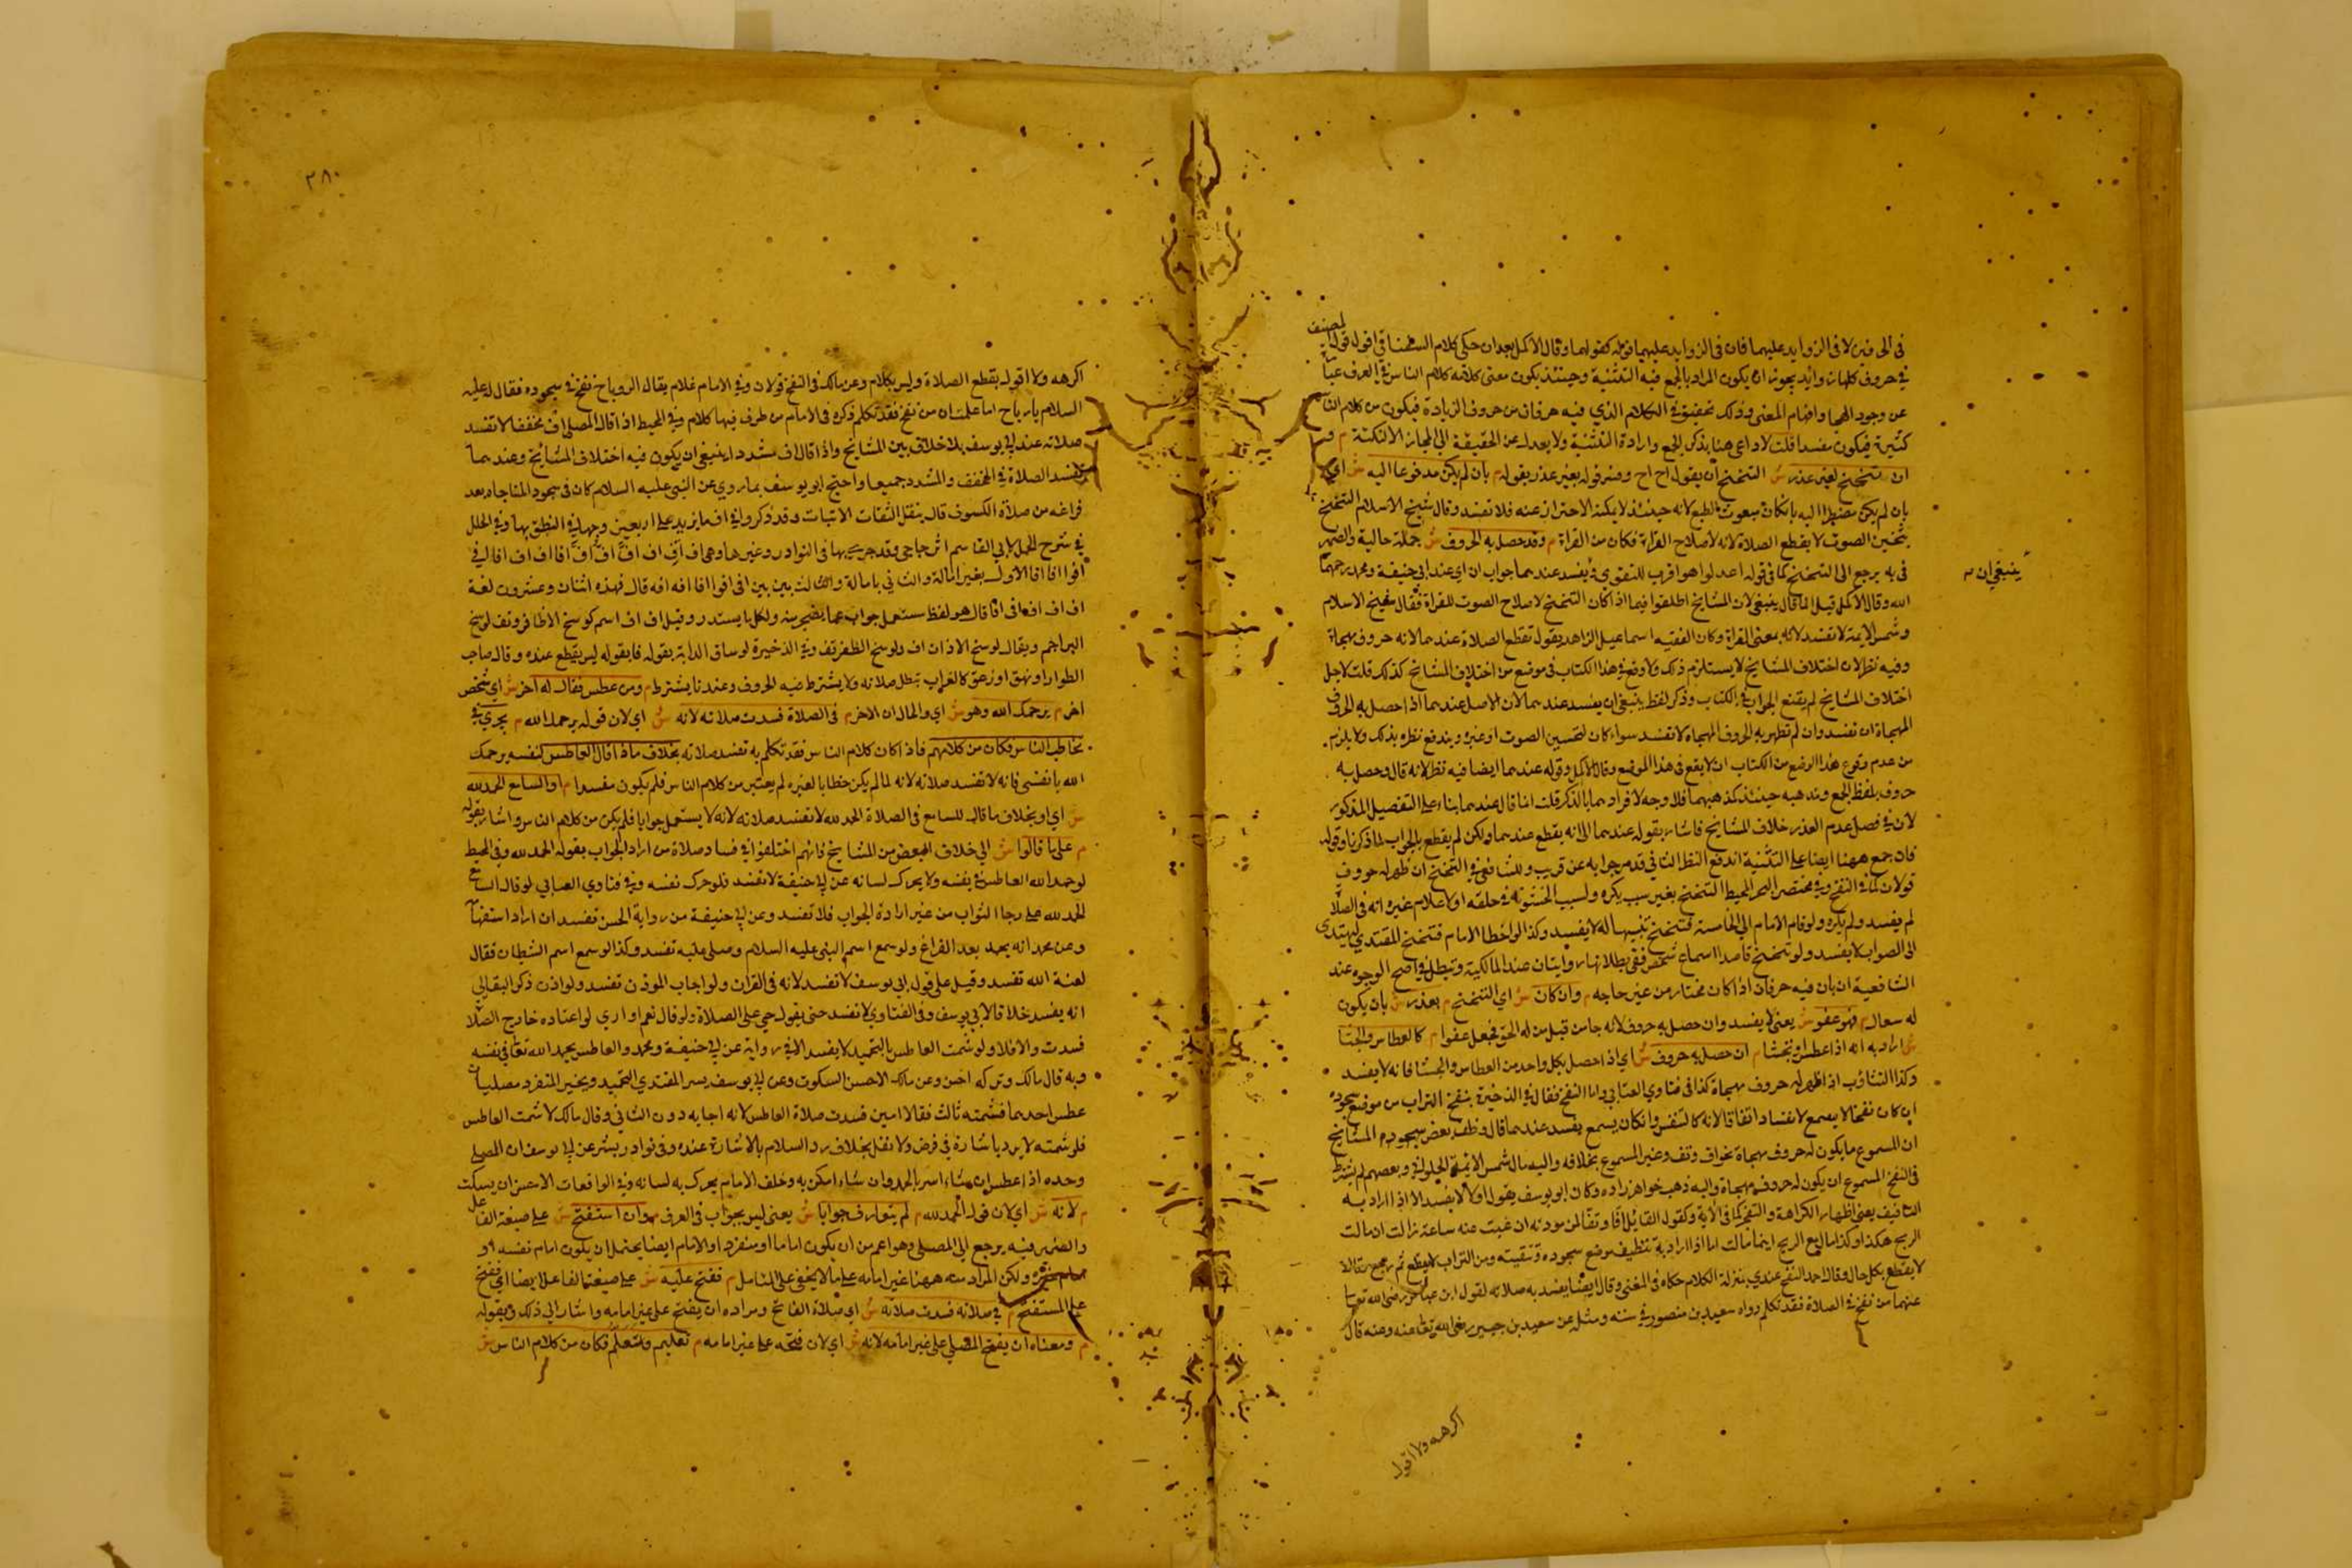 في الحرفين لا في الزوايد عليهما فان في الزوايد عليهما قوله كقولهما وقال الاكمل بعد ان حكى كلام السغناقي اقول قول المصنف
في حروف كلها زوايد يجوز ان يكون المراد بالجمع فيه التثنية وحينئذ يكون معنى كلامه كلام الناس في العرف عبارة
عن وجود الهجا وافهام المعنى وذلك تحقيق في الكلام الذي فيه حرفان من حروف الزيادة فيكون من كلام الناس
كثيرة فيكون مفسدا قلت لا داعي هنا بذكر الجمع وارادة التثنية ولا يعدل عن الحقيقة الى المجاز الا لنكتة م و
ان تنحنح لغير عذر ش التنحنح ان يقول اح اح وفسر قوله بغير عذر بقوله م بان لم يكن مدفوعا اليه ش اي
بان لم يكن مضطرا اليه بان كان مبعوث الطبع لانه حينئذ لا يمكنه الاحتراز عنه فلا تفسد وقال شيخ الاسلام التنحنح
بتحسين الصوت لا يقطع الصلاة لانه لاصلاح القراءة فكان من القراة م وقد حصل به الحروف ش جملة حالية والضمير
في به يرجع الى التنحنح كما في قوله اعدلوا هو اقرب للتقوى م يفسد عندهما جواب ان اي عند ابي حنيفة ومحمد رحمهما
ينبغي ان
الله وقال الاكمل قيل انما قال ينبغي لان المشايخ اطلقوا فيما اذا كان التنحنح لاصلاح الصوت للقراة فقال شيخ الاسلام
وشمس الايمة لا تفسد لانه بمعنى القراة وكان الفقيه اسماعيل الزاهد يقول تقطع الصلاة عندهما لانه حروف مهجاة
وفيه نظر لان اختلاف المشايخ لا يستلزم ذلك ولا وقع في هذا الكتاب في موضع من اختلاف المشايخ كذلك قلت لاجل
اختلاف المشايخ لم يقنع الجواب في الكتاب وذكر لفظ ينبغي ان يفسد عندهما لان الاصل عندهما اذا حصل به الحروف
المهجاة ان تفسد وان لم تظهر به الحروف المهجاة لا تفسد سواء كان لتحسين الصوت او غيره ويندفع نظره بذلك ولا يلزم
من عدم وقوع هذا الوضع من الكتاب ان لا يقع في هذا الموضع وقال الاكمل وقوله عندهما ايضا فيه نظر لانه قال وحصل به
حروف بلفظ الجمع ومذهبه حينئذ كمذهبهما فلا وجه لافرادهما بالذكر قلت انما قال عندهما بناء على التفصيل المذكور
لان في فصل عدم العذر خلاف المشايخ فاشار بقوله عندهما الى انه يقطع عندهما ولكن لم يقطع بالجواب لما ذكرنا وقوله
فان جمع ههنا ايضا على التثنية اندفع النظر الثاني قد مر جوابه عن قريب وللشافعي في التنحنح ان ظهر له حروف
قولان كما في النفخ وفي مختصر البحر المحيط التنحنح بغير سبب يكره ولسبب الخشونة في حلقه او لاعلام غيره انه في الصلاة
لم يفسد ولم يكره ولو قام الامام الى الخامسة فتنحنح تنبيها له لا يفسد وكذا لو اخطا الامام فتنحنح المقتدي ليهتدى
الى الصواب لا يفسد ولو تنحنح قاصدا اسماع شخص ففي بطلانها روايتان عند المالكية وتبطل في اصح الوجوه عند
الشافعية ان بان فيه حرفان اذا كان مختارا من غير حاجه م وان كان ش اي التنحنح م بعذر ش بان يكون
له سعال م فهو عفو ش يعني لا يفسد وان حصل به حروف لانه جا من قبل من له الحق فيجعل عفوا م كالعطاس والجشا
ش اراد به انه اذا عطس او تجشا م ان حصل به حروف ش اي اذ احصل بكل واحد من العطاس والجشا فانه لا يفسد
وكذا التثاوب اذ اظهر له حروف مهجاة كذا في فتاوي العتابي واما النفخ فقال في الذخيرة ينفخ التراب من موضع سجوده
ان كان نفخا لا يسمع لا تفسد اتفاقا لانه كالتنفس وان كان يسمع يفسد عندهما قال وظن بعض المشايخ
ان المسموع ما يكون له حروف مهجاة نحو اف وتف وغير المسموع بخلافه واليه مال شمس الايمة الحلواني وبعضهم لم يشترط
في النفخ المسموع ان يكون له حروف مهجاة واليه ذهب خواهر زاده وكان ابو يوسف يقول اولا لا يفسد الا اذا اراد به
التافيف يعني اظهار الكراهة والتضجر كما في الاية وكقول القايل افا وتفا لمن مودته ان غبت عنه ساعة زالت ان مالت
الريح هكذا وكذا مال مع الريح اينما مالت اما اذا اراد به تنظيف موضع سجوده وتنقيته من التراب لا يقطع ثم رجع وقال لا
لا يقطع بكل حال وقال احمد النفخ عندي بمنزلة الكلام حكاه في المغني وقال ايضا يفسد به صلاته لقول ابن عباس رضي الله تعالى
عنهما من نفخ في الصلاة فقد تكلم رواه سعيد بن منصور في سننه ومثله عن سعيد بن جبير رضي الله تعالى عنه وعنه قال
اكرهه ولا اقول
٢٨٠
اكرهه ولا اقول يقطع الصلاة وليس بكلام وعن مالك في النفخ قولان وفي الامام غلام يقال له رباح نفخ في سجوده فقال له عليه
السلام يا رباح اما علمت ان من نفخ فقد تكلم ذكره في الامام من طرف فيها كلام وفي المحيط اذ اقال المصلي اف مخففا لا تفسد
صلاته عند ابي يوسف بلا خلاف بين المشايخ واذا قال اف مشددا ينبغي ان يكون فيه اختلاف المشايخ وعندهما
تفسد الصلاة في المخفف والمشدد جميعا واحتج ابو يوسف بما روي عن النبي عليه السلام كان في سجود المناجاه بعد
فراغه من صلاة الكسوف قال ينقل الثقات الاثبات وقد ذكروا في اف ما يزيد على اربعين وجها في النطق بها وفي الحلل
في شرح الجمل لابي القاسم الزجاجي وقد جربها في النوادر وغيرها وهي اف اف اف اف اف اف افا اف اف افا لي في
افوا افا افا الاول بغير امالة والثاني بامالة والثالث بين بين افي افوا افا افه افه قال فهذه اثنان وعشرون لغة
اف اف افعا في افا قال هو لفظ مستعمل جواب عما يضجر منه ولكل ما يستقذر وقيل اف اف اسم كوسخ الاظافر وتف لوسخ
البراجم ويقال لوسخ الاذان اف ولوسخ الظفر تف وفي الذخيرة لو ساق الدابة بقوله فا بقوله ليس يقطع عنده وقال صاحب
الطوارا ونهق او زعق كالغراب تبطل صلاته ولا يشترط فيه الحروف وعندنا يشترط م ومن عطس فقال له اخر ش اي شخص
اخر م يرحمك الله وهو ش اي والحال ان الاخر م في الصلاة فسدت صلاته لانه ش اي لان قوله يرحمك الله م يجري في
تخاطب الناس فكان من كلامهم فاذ اكان كلام الناس فقد تكلم به تفسد صلاته بخلاف ما اذا قال العاطس لنفسه يرحمك
الله يا نفسي فانه لا تفسد صلاته لانه لما لم يكن خطابا لغيره لم يعتبر من كلام الناس فلم يكون مفسدا م او السامع الحمد لله
ش اي او بخلاف ما قال السامع في الصلاة الحمد لله لا تفسد صلاته لانه لا يستعمل جوابا فلم يكن من كلام الناس واشار بقوله
م على ما قالوا ش الى خلاف البعض من المشايخ فانهم اختلفوا في فساد صلاة من اراد الجواب بقوله الحمد لله وفي المحيط
لو حمد الله العاطس في نفسه ولا يحرك لسانه عن ابي حنيفة لا تفسد فلو حرك تفسد وفي فتاوي العتابي لو قال السامع
الحمد لله على رجا الثواب من غير ارادة الجواب فلا تفسد وعن ابي حنيفة من رواية الحسن تفسد ان اراد استفهاما
وعن محمد انه يحمد بعد الفراغ ولو سمع اسم النبي عليه السلام وصلى عليه تفسد وكذا لو سمع اسم الشيطان فقال
لعنة الله تفسد وقيل على قول ابي يوسف لا تفسد لانه في القران ولو اجاب الموذن تفسد ولو اذن ذكر البقالي
انه يفسد خلافا لابي يوسف وفي الفتاوي لا تفسد حتى يقول حي على الصلاة ولو قال نعم او اري لو اعتاده خارج الصلاة
فسدت والا فلا ولو شمت العاطس بالتحميد لا يفسد الا في رواية عن ابي حنيفة ومحمد والعاطس يحمد الله تعالى في نفسه
وبه قال مالك وتركه احسن وعن مالك الاحسن السكوت وعن ابي يوسف يسر المقتدي التحميد ويخير المنفرد مصليان
عطس احدهما فشمته ثالث فقالا امين فسدت صلاة العاطس لانه اجابه دون الثاني وقال مالك لا شمت العاطس
فلو شمته لا يرد باشارة في فرض ولا نفل بخلاف رد السلام بالاشارة عنده وفي نوادر بشر عن ابي يوسف ان المصلي
وحده اذ اعطس ان شاء اسر بالحمد وان شاء امكن به وخلف الامام يحرك به لسانه وفي الواقعات الاحسن ان يسكت
م لانه ش اي لان قول الحمد لله م لم يتعارف جوابا ش يعني ليس بجواب في العرف م وان استفتح ش على صيغة الفاعل
والضمير فيه يرجع الى المصلي وهو اعم من ان يكون اماما او منفردا والامام ايضا يحتمل ان يكون امام نفسه او
امام غيره ولكن المراد منه ههنا غير امامه على ما لا يخفى على المتامل م ففتح عليه ش على صيغة الفاعل ايضا اي ففتح
على المستفتح م في صلاته فسدت صلاته ش اي صلاة الفاتح ومراده ان يفتح على غير امامه واشار الى ذلك بقوله
م ومعناه ان يفتح المصلي على غير امامه لانه ش اي لان فتحه على غير امامه م تعليم وتعلم فكان من كلام الناس ش